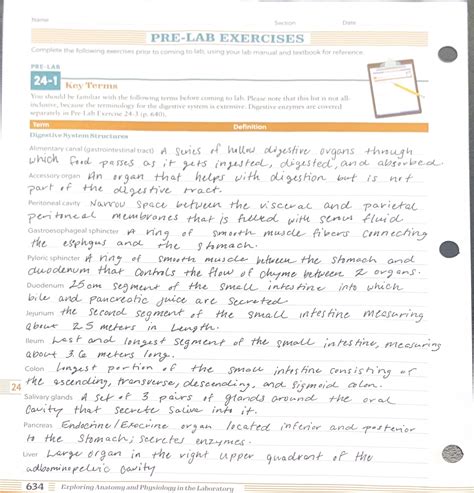 Name
Section
Date
PRE-LAB EXERCISES
Complete the following exercises prior to coming to lab, using your lab manual and textbook for reference.
PRE-LAB
24-1 Key Terms
You should be familiar with the following terms before coming to lab. Please note that this list is not all-
inclusive, because the terminology for the digestive system is extensive. Digestive enzymes are covered
separately in Pre-Lab Exercise 24-3 (p. 640).
Term
Definition
Digestive System Structures
Alimentary canal (gastrointestinal tract) A series of hollow digestive organs through
which food passes as it gets ingested, digested, and absorbed.
Accessory organ An organ that helps with digestion but is not
part of the digestive tract.
Peritoneal cavity Narrow space between the visceral and parietal
peritoneal membranes that is filled with serous fluid
Gastroesophageal sphincter A ring of smooth muscle fibers connecting
the esphgus and the stomach.
Pyloric sphincter A ring of smooth muscle between the stomach and
duodenum that controls the flow of chyme between 2 organs.
Duodenum 25cm segment of the small intestine into which
bile and pancreatic juice are secreted.
Jejunum the second segment of the small intestine measuring
about 2.5 meters in length.
Ileum Last and longest segment of the small intestine, measuring
about 3.6 meters long.
Colon longest portion of the small intestine consisting of
24
the ascending, transverse, descending, and sigmoid colon.
Salivary glands A set of 3 pairs of glands around the oral
cavity that secrete saliva into it.
Pancreas Endocrine/Exocrine organ located inferior and posterior
to the stomach; secretes enzymes.
Liver Large organ in the right upper quadrant of the
abdominopelvic cavity
634 Exploring Anatomy and Physiology in the Laboratory